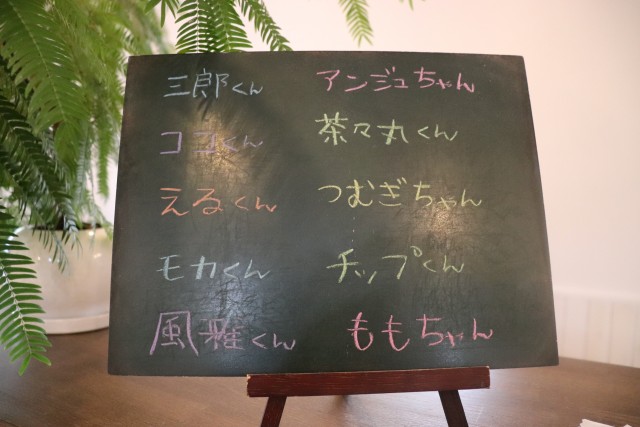 三郎くん
アンジュちゃん
ココくん
茶々丸くん
えるくん
つむぎちゃん
モカくん
チップくん
風雅くん
ももちゃん